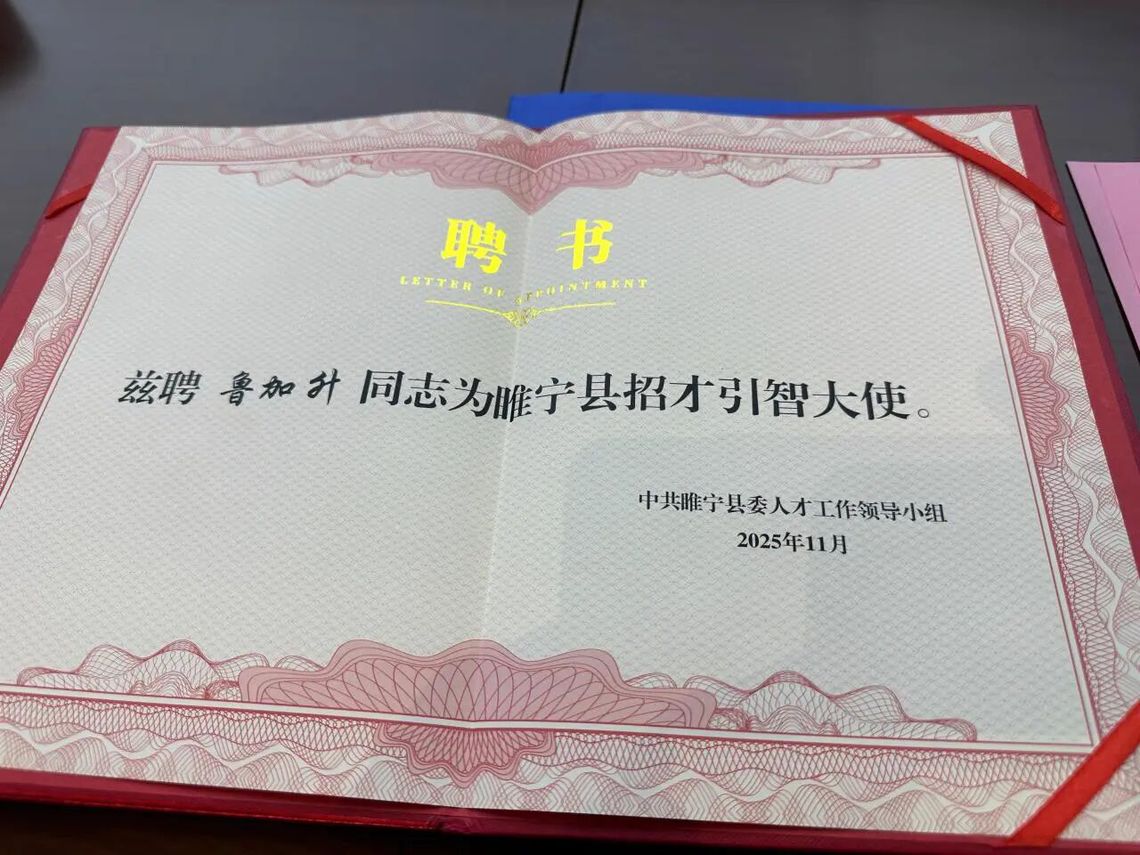 聘 书
LETTER OF APPOINTMENT
兹聘 鲁加升 同志为睢宁县招才引智大使。
中共睢宁县委人才工作领导小组
2025年11月